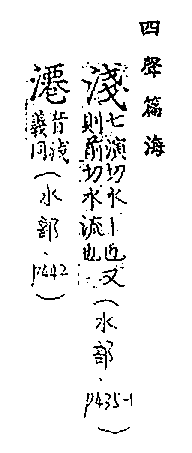 四聲篇海
淺
七演切水卜也又
則前切水流也
(水部、p435-1)
音淺
義同
(水部、p442)